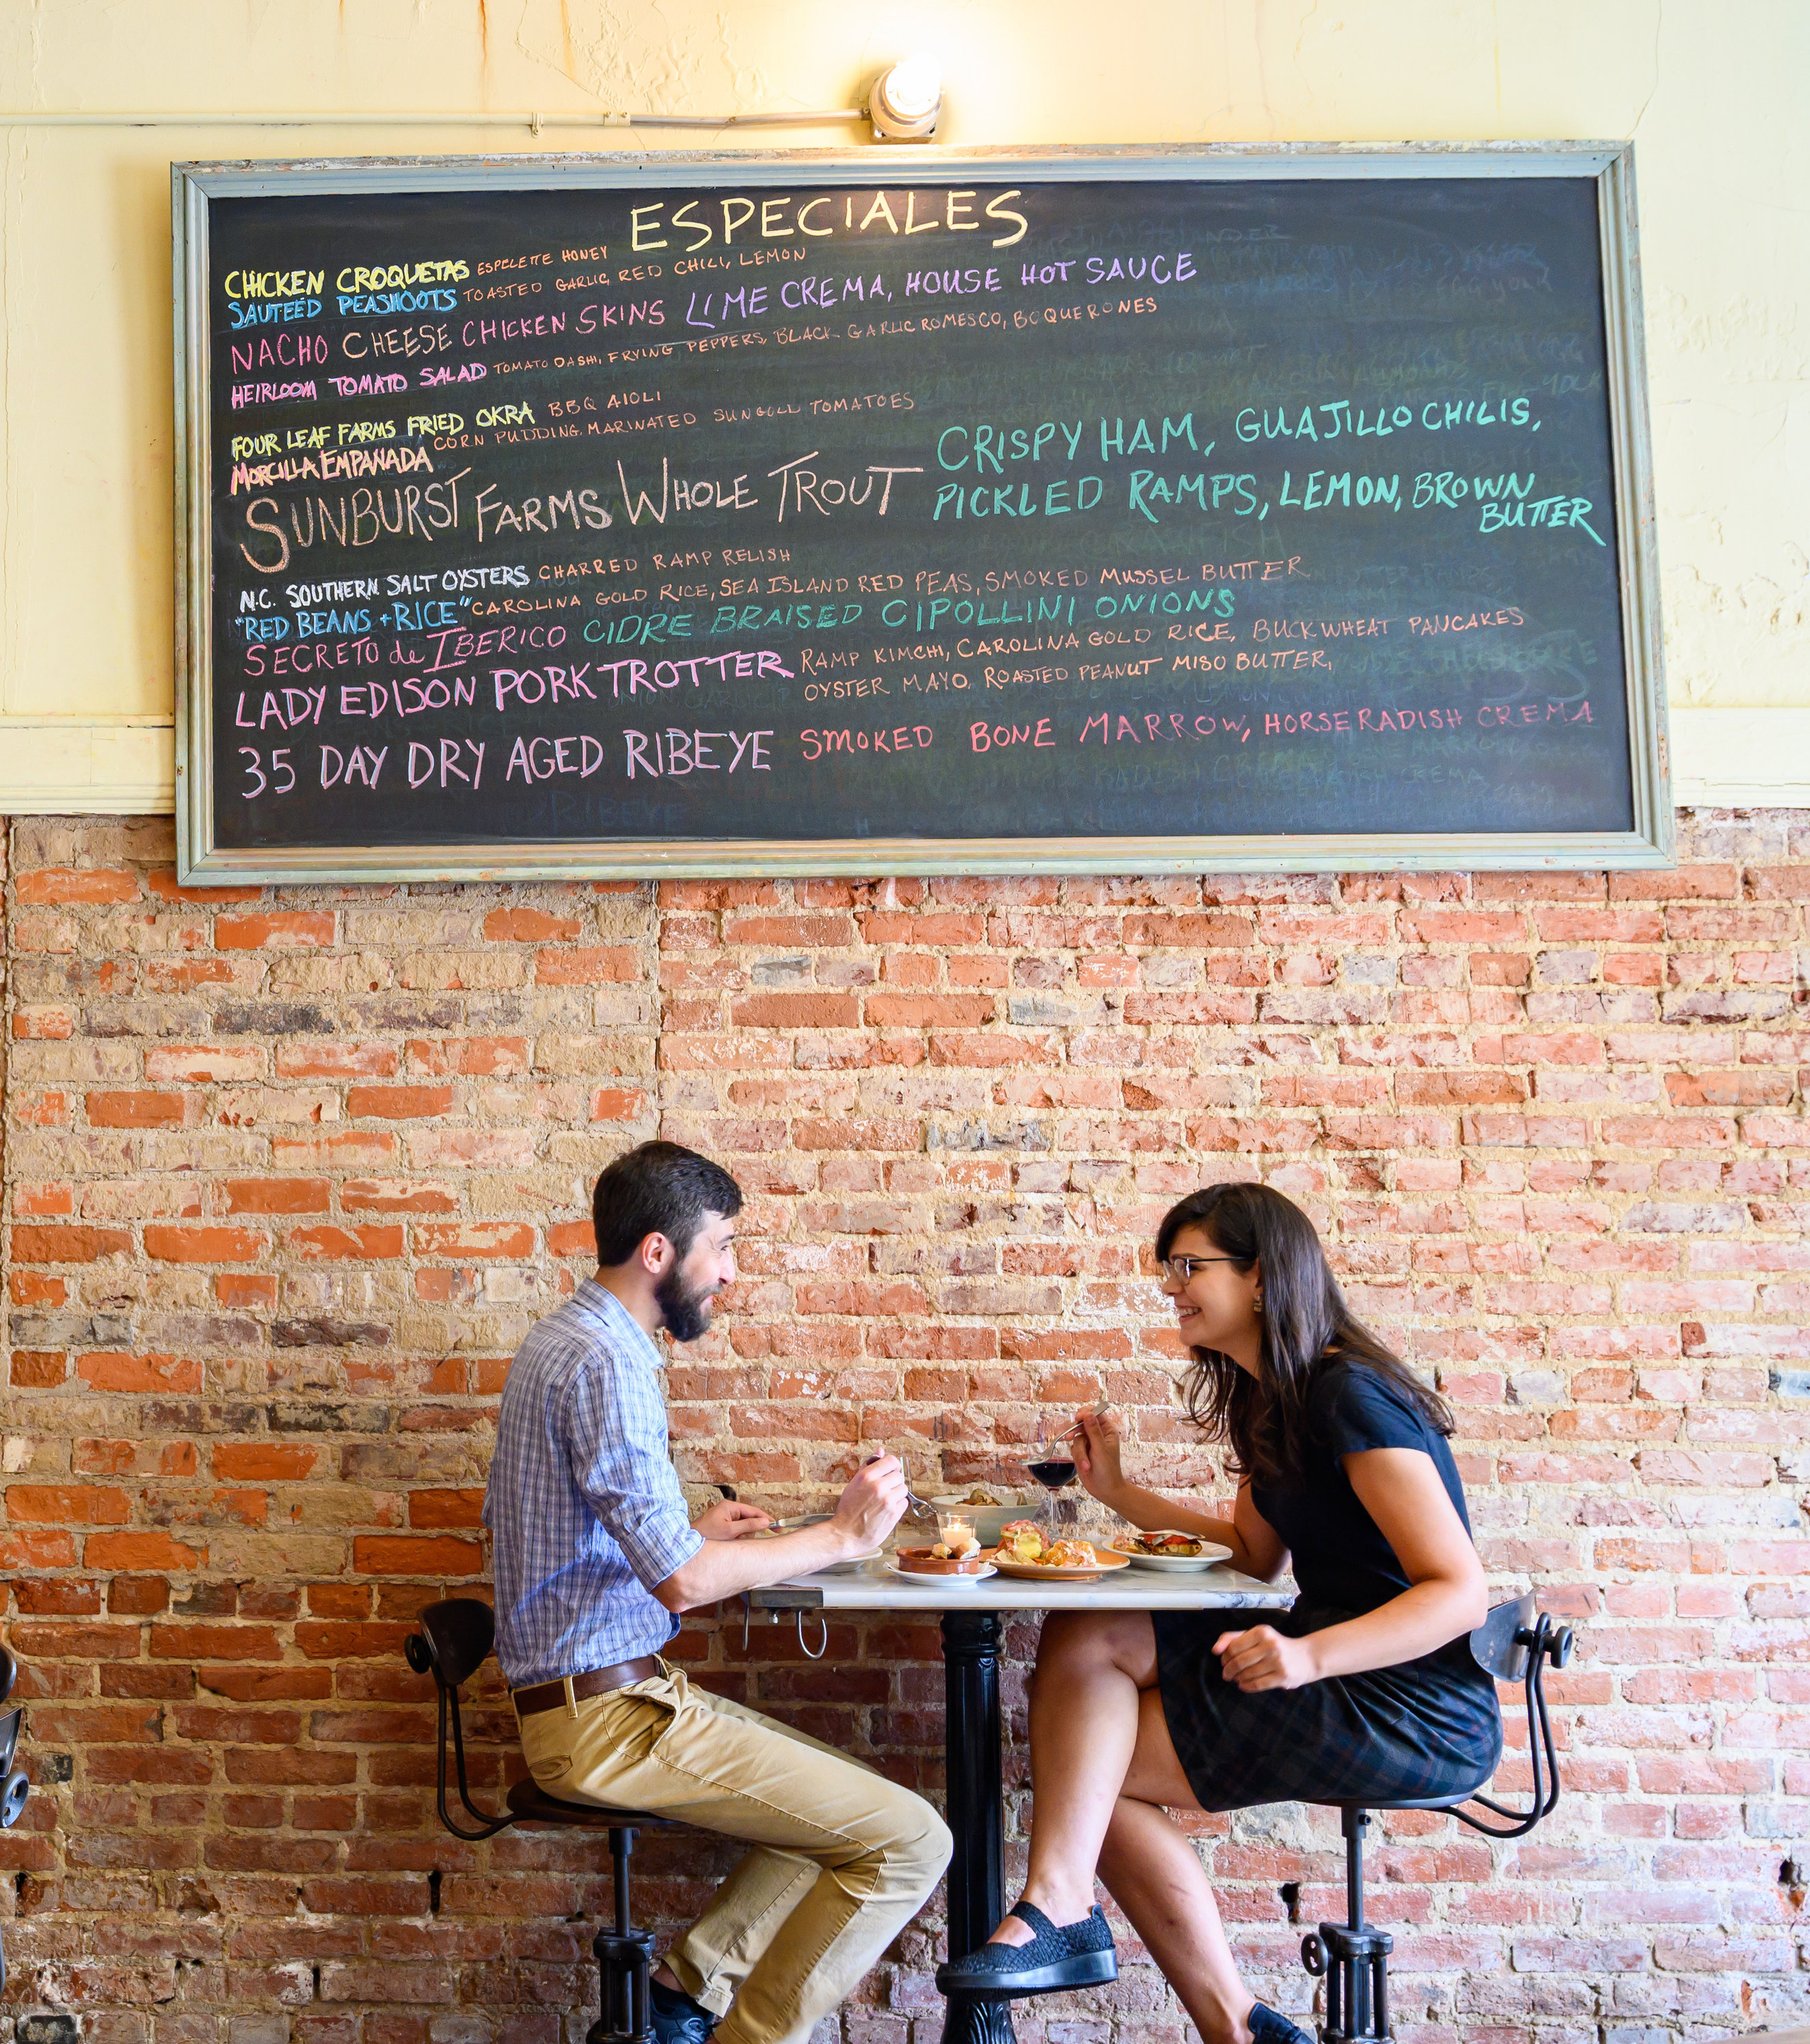 ESPECIALES
CHICKEN CROQUETAS ESPELETE HONEY
SAUTEED PEASHOOTS TOASTED GARLIC, RED CHILI, LEMON
NACHO CHEESE CHICKEN SKINS LIME CREMA, HOUSE HOT SAUCE
HEIRLOOM TOMATO SALAD TOMATO DASHI, FRYING PEPPERS, BLACK GARLIC ROMESCO, BOQUERONES
FOUR LEAF FARMS FRIED OKRA BBQ AIOLI
MORCILLA EMPANADA CORN PUDDING, MARINATED SUNGOLD TOMATOES
SUNBURST FARMS WHOLE TROUT CRISPY HAM, GUAJILLO CHILIS,
PICKLED RAMPS, LEMON, BROWN
BUTTER
N.C. SOUTHERN SALT OYSTERS CHARRED RAMP RELISH
"RED BEANS + RICE" CAROLINA GOLD RICE, SEA ISLAND RED PEAS, SMOKED MUSSEL BUTTER
SECRETO de IBERICO CIDRE BRAISED CIPOLLINI ONIONS
LADY EDISON PORK TROTTER RAMP KIMCHI, CAROLINA GOLD RICE, BUCKWHEAT PANCAKES
OYSTER MAYO, ROASTED PEANUT MISO BUTTER,
35 DAY DRY AGED RIBEYE SMOKED BONE MARROW, HORSERADISH CREMA